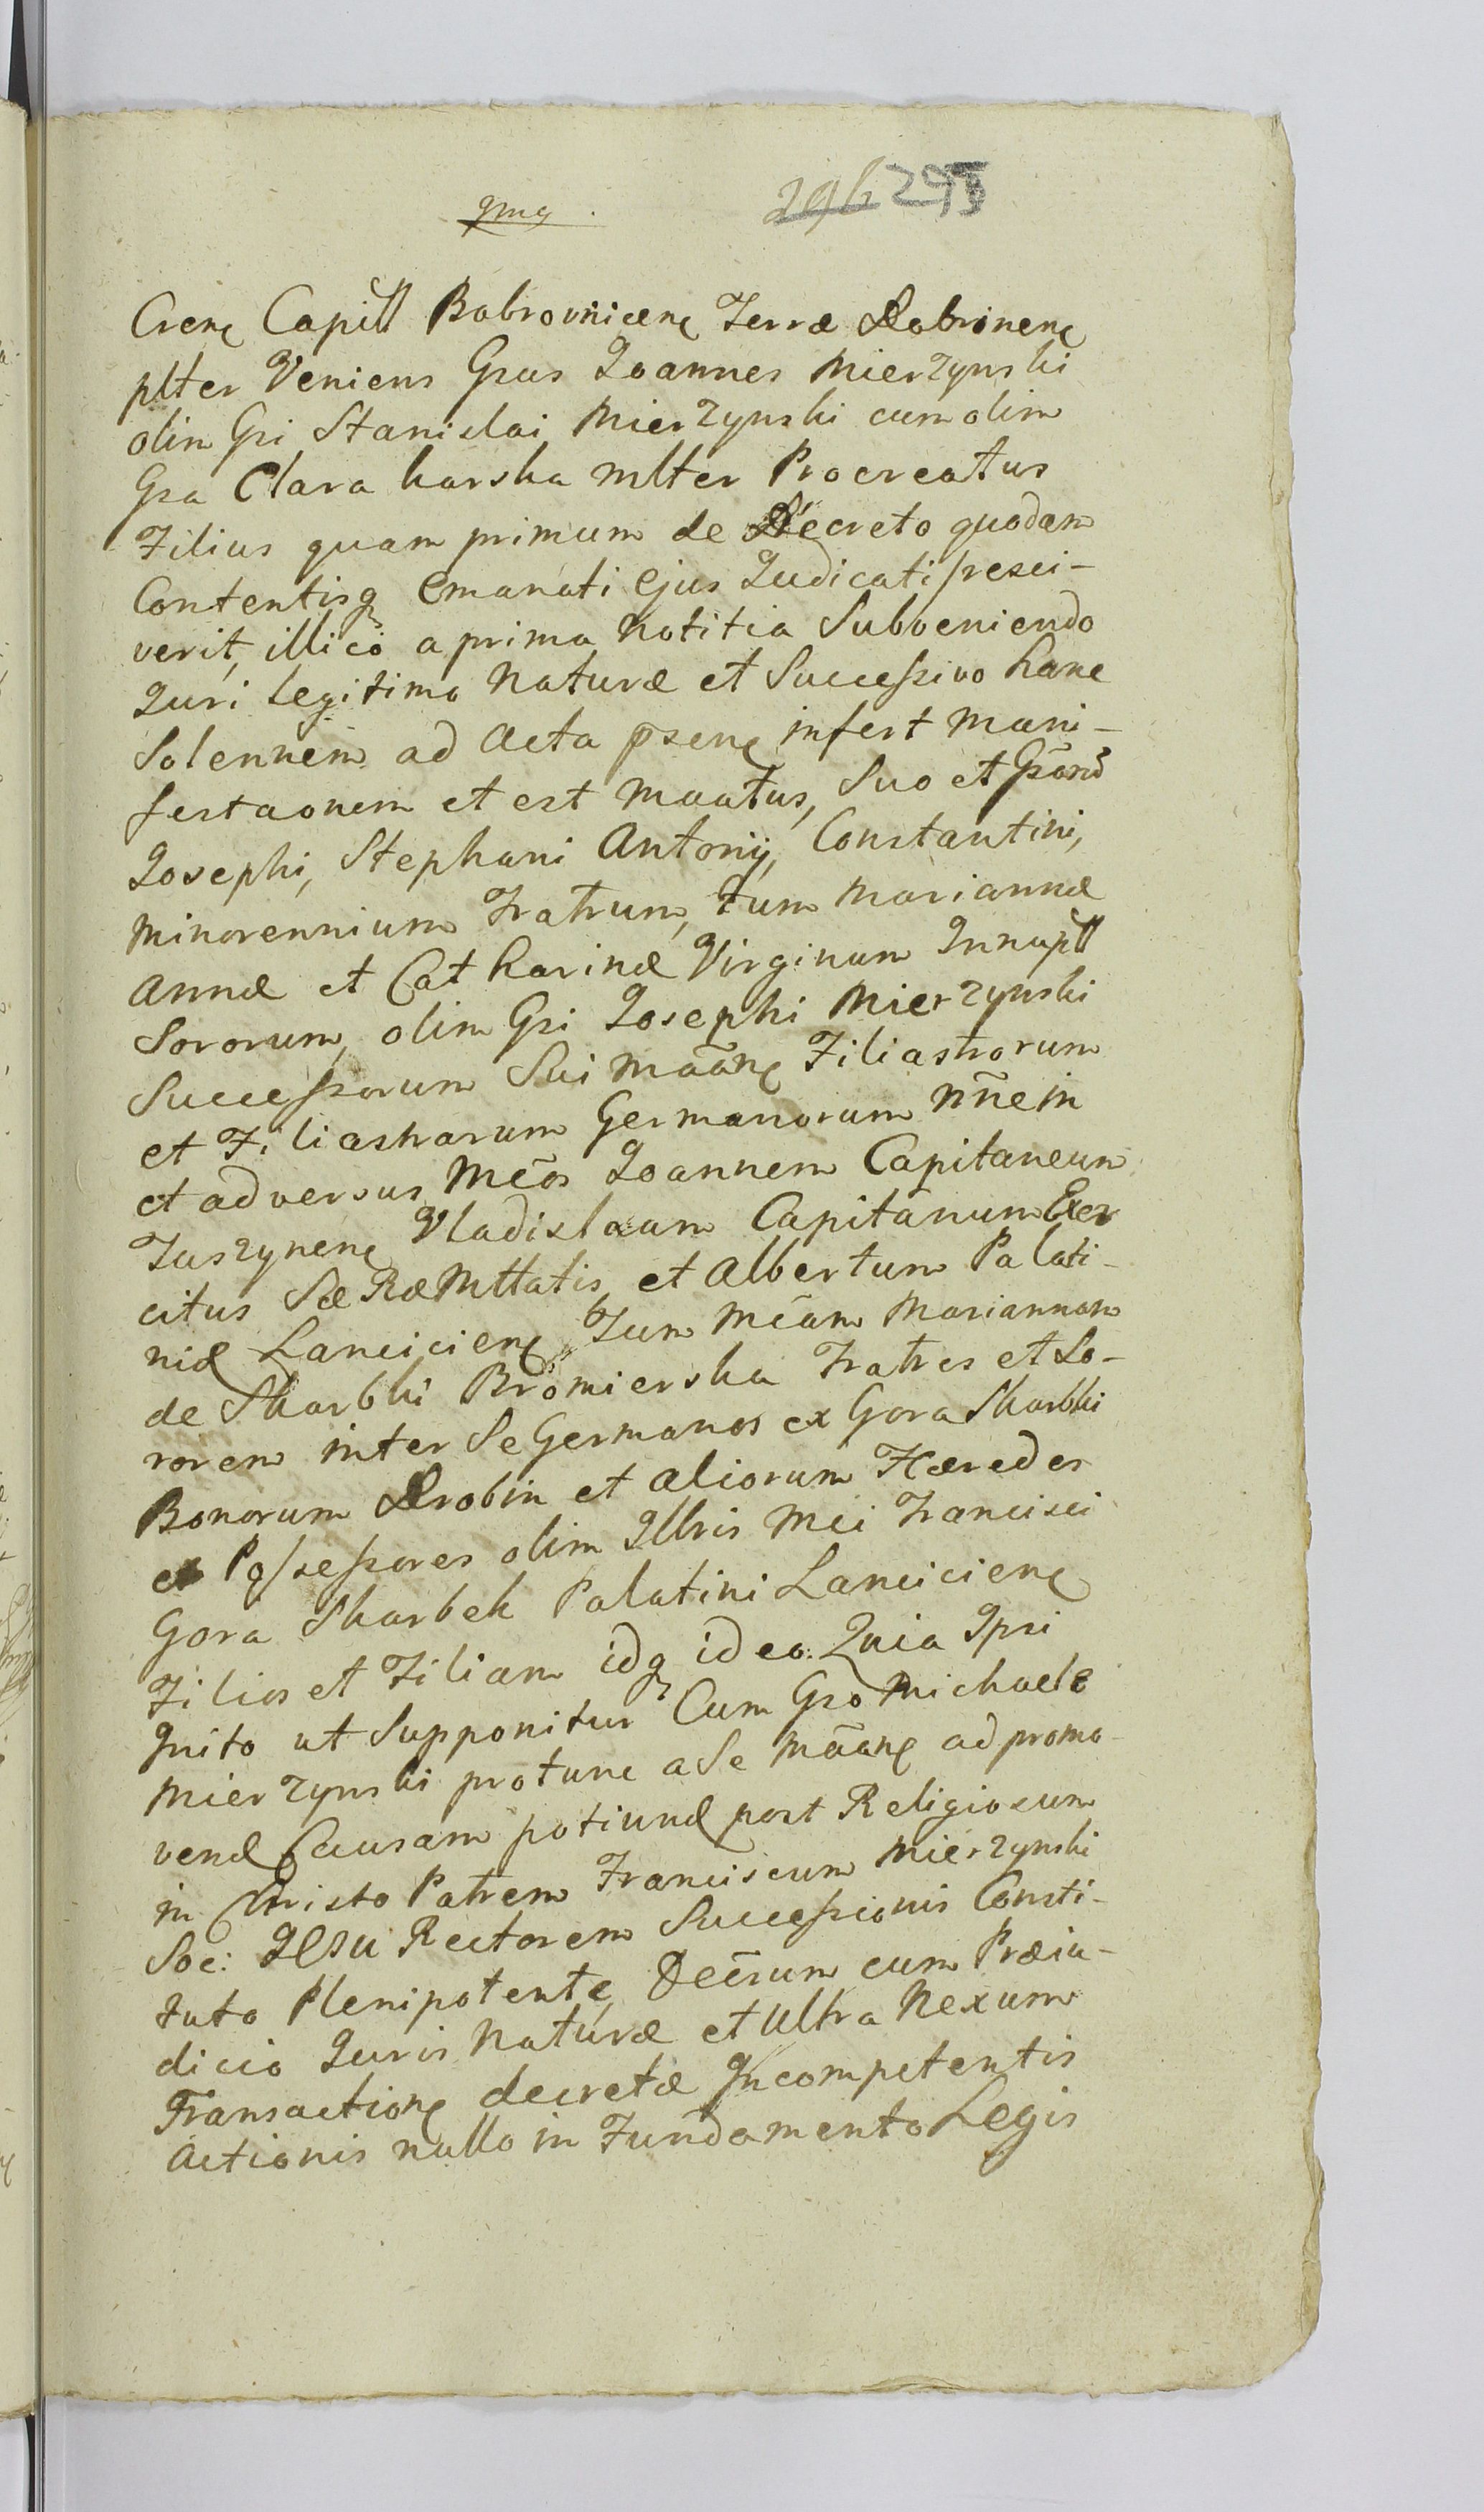 295
Crene Capitl Bobrovnicene Terræ Dobrinene
plter Veniens Gsus Joannes Mierzynski
olim Gsi Stanislai Mierzynski cum olim
Gsa Clara Karska mlter Procreatus
Filius quam primum de Decreto quodam
Contentisq Emanati Ejus Judicati resci-
verit, illico a prima Notitia Subveniendo
Juri legitimo Naturæ et Successivo hanc
Solennem ad Acta psene infert Mani-
festaonem et est Maatus, Suo et Gsorū
Josephi, Stephani Antonij, Constantini,
Minorennium Fratrum, tum Mariannæ
Annæ et Catharinæ Virginum Innuptl
Sororum, olim Gsi Josephi Mierzynski
Successorum Sui Māāne Filiastrorum
et Filiastrarum Germanorum Nñe in
et adversus Mcōs Joannem Capitaneum
Tuszynene Vladislaum Capitānum Exer
citus Sæ Ræ Mttatis, et Albertum Palati-
nid Lancicienę Tum Mcāam Mariannam
de Skarbki Bromierska Fratres et So-
rorem inter Se Germanos ex Gora Skarbki
Bonorum Drobin et aliorum Hæredes
et Possessores olim Illris Mci Francisci
Gora Skarbek Palatini Lancicienę
Filios et Filiam idq ideo: Quia Ipsi
Inito ut Supponitur Cum Gso Michaele
Mierzynski protunc a Se Māane ad promo-
vend Causam potiund post Religiosum
in Christo Patrem Franciscum Mierzynski
Soc: JESU Rectorem Successionis Consti-
tuto Plenipotente, Decrum cum Præiu-
dicio Juris Naturæ et Ultra Nexum
Transactione decretæ Incompetentis
Actionis nullo in Fundamento Legis